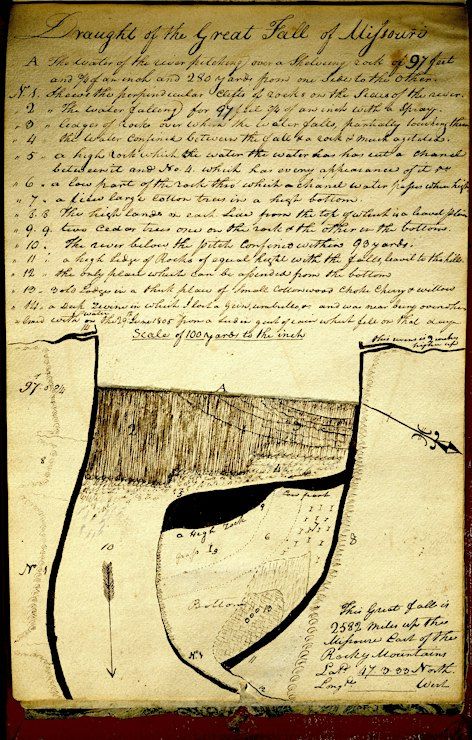 Draught of the Great Fall of Missouri
A The Water of the river pitching over a Shelveing rock of 97 feet
and ¾ of an inch and 280 yards from one Side to the other.
No 1. Shews the perpendicular Clifts of rocks on the Sides of the river.
2 " The water falling for 97 feet ¾ of an inch with a Spray
3 " ledges of rocks over which the water falls, partially
4 " the water Confined between the fall & a rock & much agitated.
5 " a high rock which the water the water has cut a chanel
between it and No 4. which has every appearance of it &c
6 " a low part of the rock thro which a chanel water passes when high
7 " a few large cotton trees in a high bottom.
8. 8 The high lands on each Side from the top of which is a leavel plain
9. 9. two Cedar trees one on the rock & the other in the bottom.
10. The river below the pitch Confined within 93 yards.
11 : a high ledge of Rocks of equal hight with the falls, leavel to the hills
12 " the only place which can be assended from the bottom
13. 3 old Lodges in a thick place of Small Cottonwood Choke Chery & willow
14. a Deep in which I lost a gun, umbrilla & and was near being over
with water on the 29 June 1805 from a  gust of rain which fell on that day
Scale of 100 yards to the inch
14
this is 2 miles
higher up
97 0 ¾
A
2
3
4
8
No 1
10
5
a high rock
9
low part
6
7
8
grass
Bottom
13
No 1
11
12
This Great falls is
2582 miles up the
Missouri East of the
Rocky Mountains
Latd 47 3 33 North
Longde West